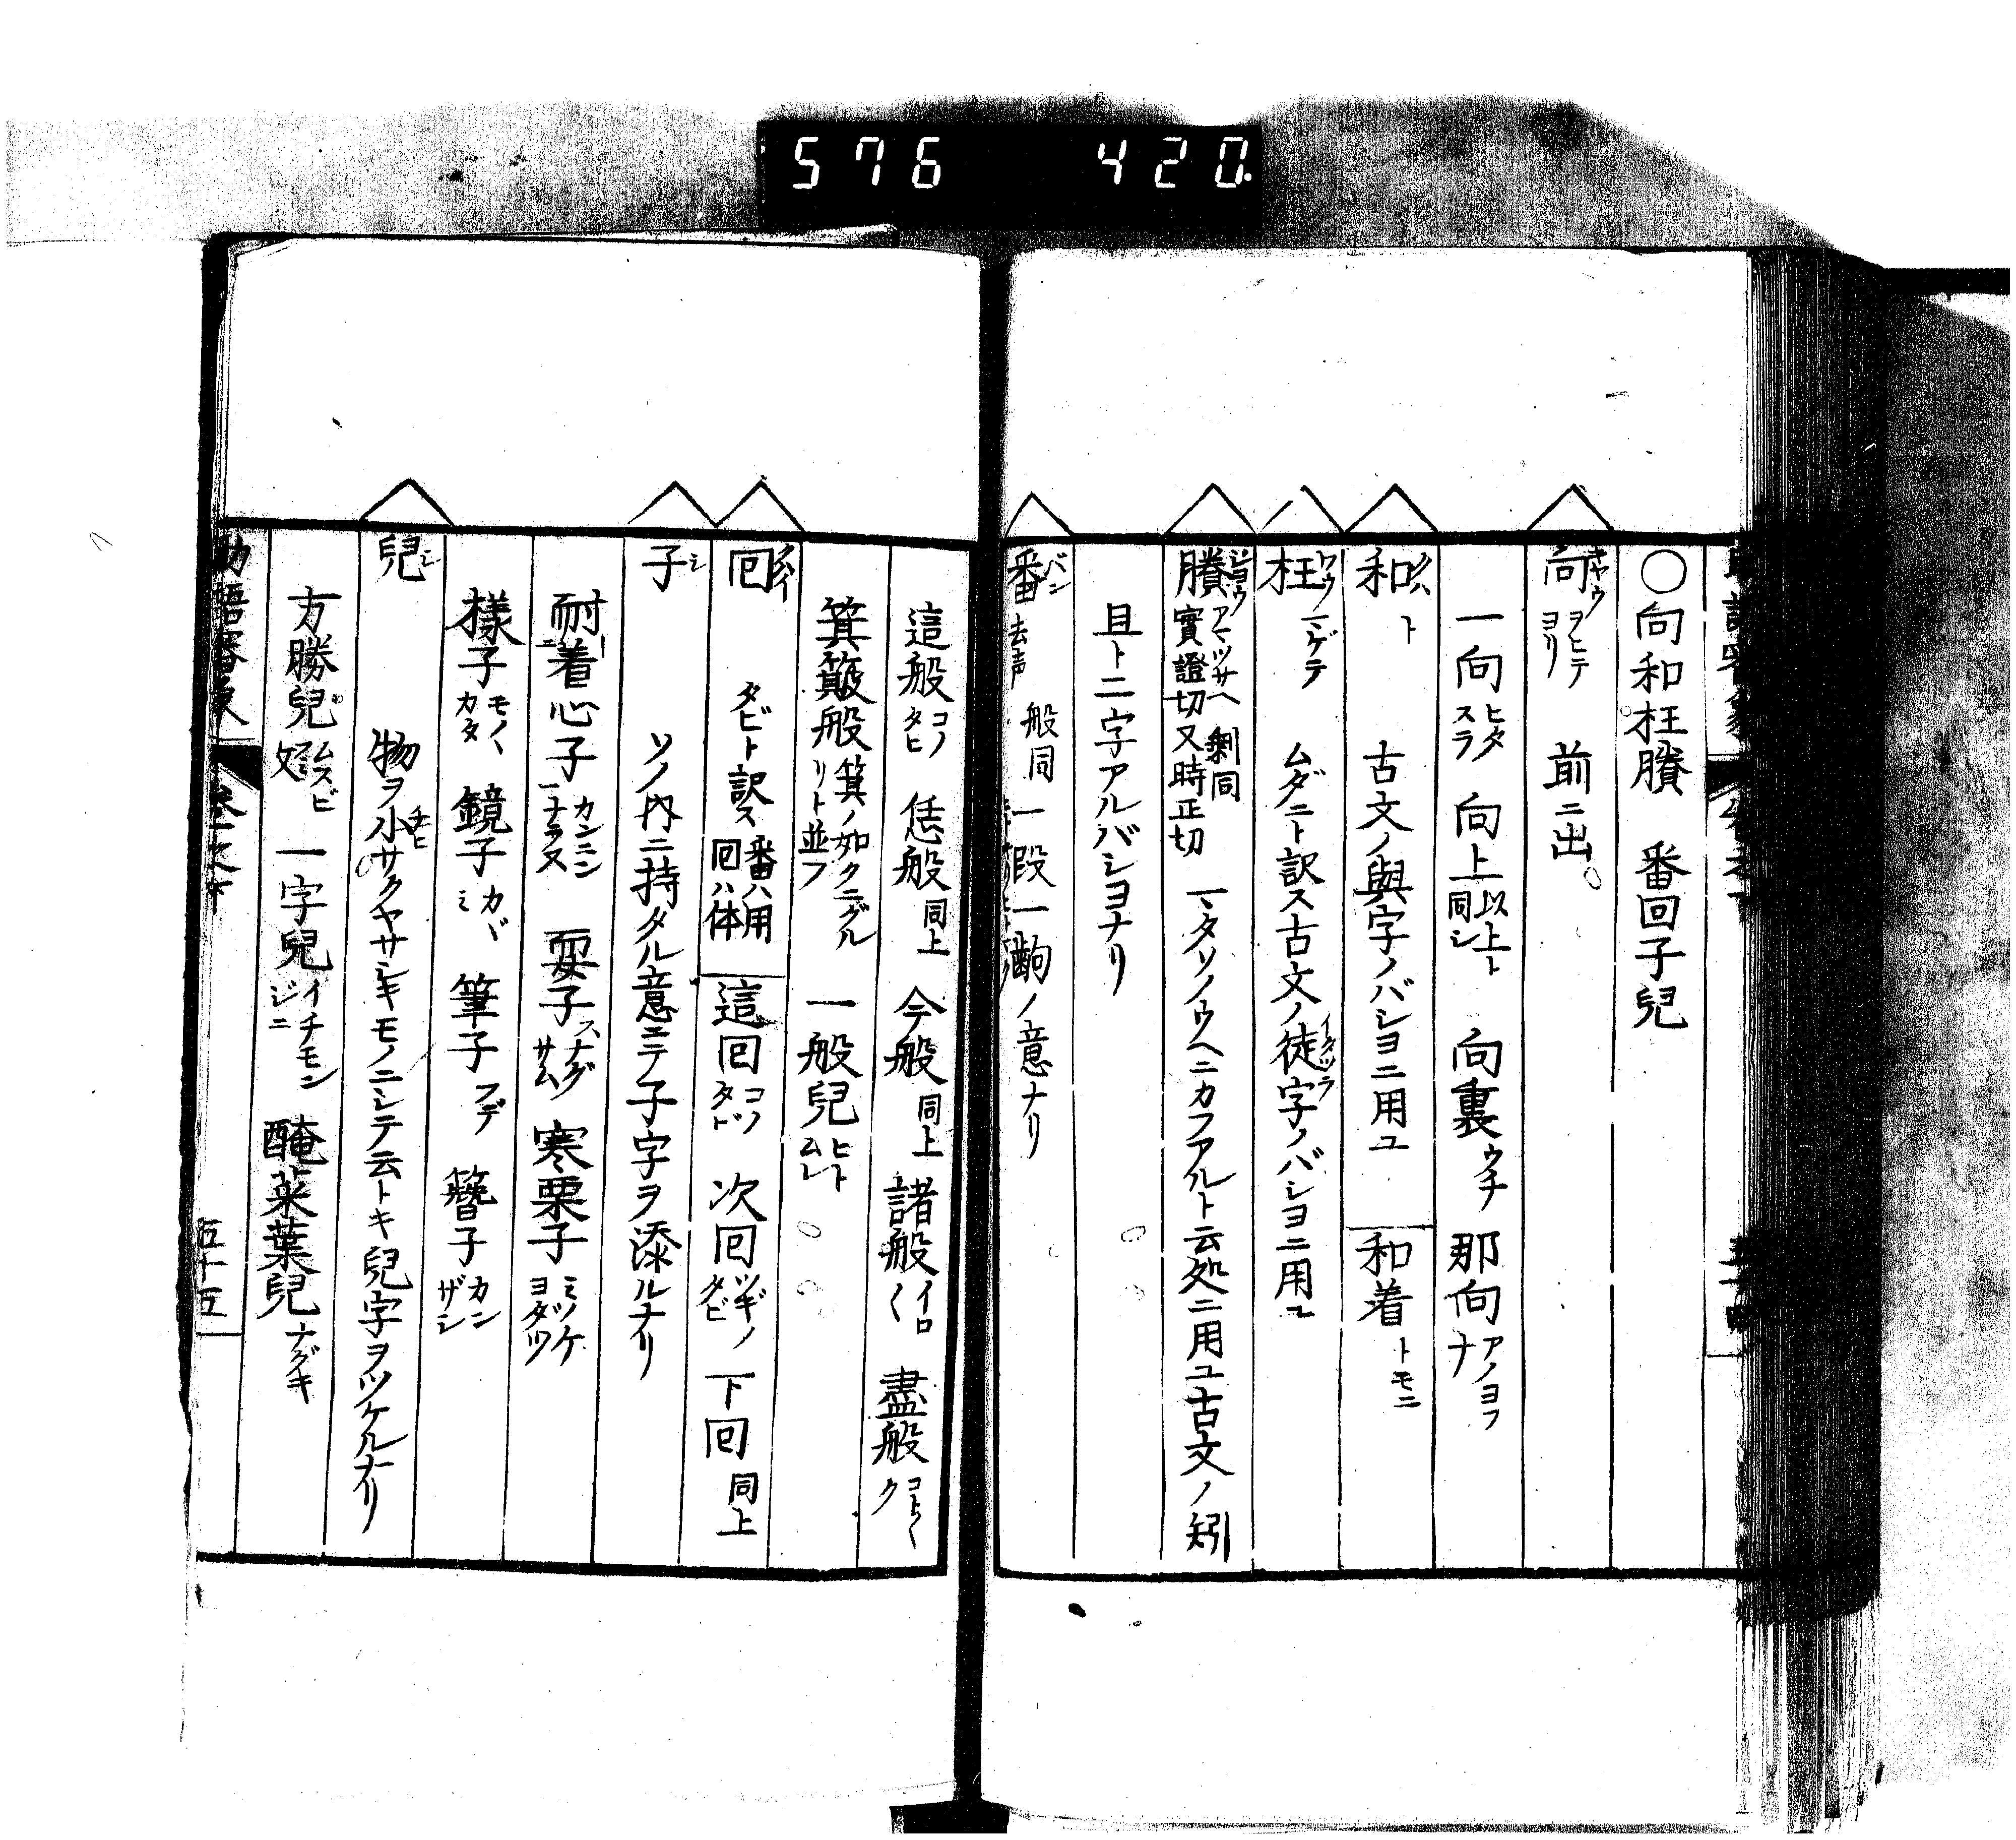 576 420
〇向和枉賸 番回子兒
向 キヤウ ヲヒテ ヨリ 前ニ出
一向 ヒタスラ 向上 以上ト同シ 向裏 ウチ 那向 アノヨフナ
和 クハ ト 古文ノ與字ノバシヨニ用ユ 和着 トモニ
枉 ワウ マゲテ ムダニト訳ス古文ノ徒字ノバシヨニ用ユ
賸 ジヨウ アマツサヘ 剰同 實證切又時正切 マタソノウヘニカフアルト云処ニ用ユ古文ノ矧
且ト二字アルバシヨナリ
番 バン 去声 般同 一段一齣ノ意ナリ
這般 コノタヒ 恁般 同上 今般 同上 諸般 イロ〱 盡般 コト〱ク
箕簸般 箕ノ如クニグルリト並フ 一般兒 ヒトムレ
回 タビト訳ス 番ハ用回ハ体 這回 コノタビ 次回 ツギノタビ 下回 同上
子 シ ソノ内ニ持タル意ニテ子字ヲ添ルナリ
耐着心子 カンニンナラヌ 耍子 スナグサム 寒栗子 ミノケヨダツ
樣子 モノヽカタ 鏡子 カヾミ 筆子 フデ 簪子 カンザシ
兒 シ 物ヲ小サクヤサシキモノニシテ云トキ兒字ヲツケルナリ
方勝兒 ムスビ文 一字兒 イチモンジニ 醃菜葉兒 ナグキ
五十五